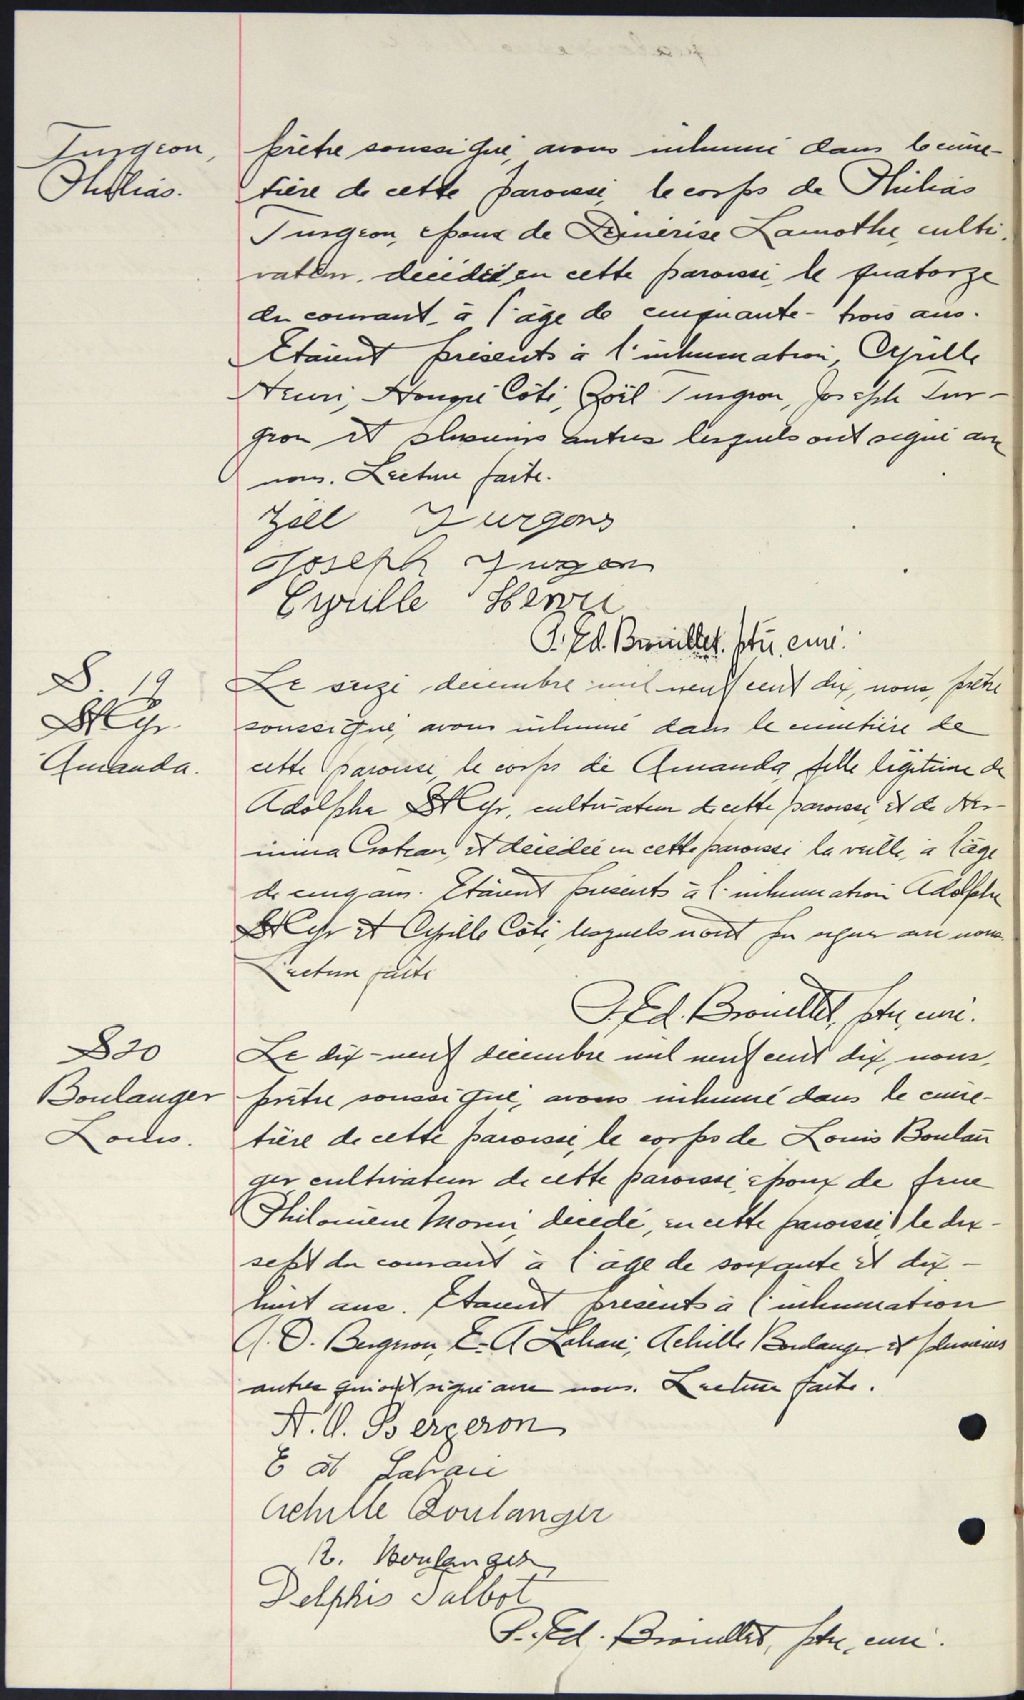 Turgeon,
Philias.
prêtre soussigné, avons inhumé dans le cime-
tière de cette paroisse, le corps de Philias
Turgeon, époux de Démérise Lamothe, culti-
vateur, décédé en cette paroisse, le quatorze
du courant, à l'âge de cinquante-trois ans.
Etaient présents à l'inhumation, Cyrille
Henri, Honoré Côté, Zoël Turgeon, Joseph Tur-
geon et plusieurs autres lesquels ont signé avec
nous. Lecture faite.
Zoel Turgeons
Joseph Turgeon
Cyrille Henri
P. Ed. Brouillet, ptre, curé.
S. 19
St Cyr
Amanda.
Le seize décembre mil neuf cent dix, nous, prêtre
soussigné, avons inhumé dans le cimetière de
cette paroisse, le corps de Amanda, fille légitime de
Adolphe St Cyr, cultivateur de cette paroisse, et de Her-
mina Croteau, et décédée en cette paroisse la veille, à l'âge
de cinq ans. Etaient présents à l'inhumation Adolphe
St Cyr et Cyrille Côté, lesquels n'ont pu signer avec nous.
Lecture faite
P. Ed. Brouillet, ptre, curé.
S 20
Boulanger
Louis.
Le dix-neuf décembre mil neuf cent dix, nous,
prêtre soussigné, avons inhumé dans le cime-
tière de cette paroisse, le corps de Louis Boulan
ger cultivateur de cette paroisse, époux de feue
Philomène Morin, décédé, en cette paroisse, le dix-
sept du courant à l'âge de soixante et dix-
huit ans. Etaient présents à l'inhumation
A. O. Bergeron, E. A Lahaie, Achille Boulanger et plusieurs
autres qui ont signé avec nous. Lecture faite.
A. O. Bergeron
E A Lahaie
Achille Boulanger
R. Boulanger
Delphis Talbot
P. Ed. Brouillet, ptre, curé.